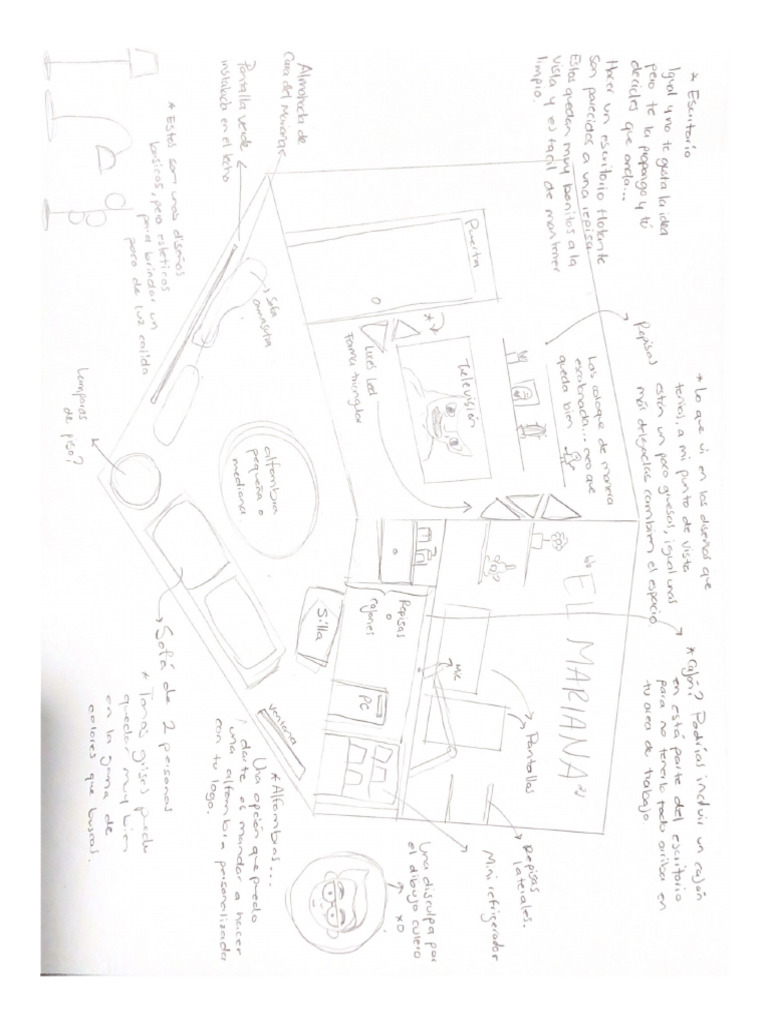 * Escritorio
Igual y no te gusta la idea
pero te la propongo y tú
decides que onda...
Hacer un escritorio flotante
son parecidos a una repisa
Estos quedan muy bonitos a la
vista y es facil de mantener
limpio.
Repisas
* Lo que vi en los diseños que
tenias, a mi punto de vista
están un poco guesas, igual unas
más delgadas cambien el espacio.
* Cajón? Podrías incluir un cajón
en está parte del escritorio
para no tenerlo todo arriba en
tu area de trabajo
Las coloque de manera
escalonada... creo que
queda bien
Puerta
Televisión
Luces Led
Forma triangular
"EL MARIANA"
Mic
Pantallas
Repisas
laterales.
Mini refrigerador
Repisas
o
cajones
PC
Silla
Ventana
Almohada de
Cara del Mariana
Pantalla verde
instalada en el techo
Sofa
alfombra
pequeña o
mediana
Lamparas
de piso?
* Estos son unos diseños
basicos, pero esteticos
para brindar un
poco de luz calida
Sofá de 2 personas
* Tonos grises puede
quedar muy bien
en la gama de
colores que buscas.
* Alfombras...
Una opción que puedo
darte es mandar a hacer
una alfombra personalizada
con tu logo.
Una disculpa por
el dibujo culero
xD